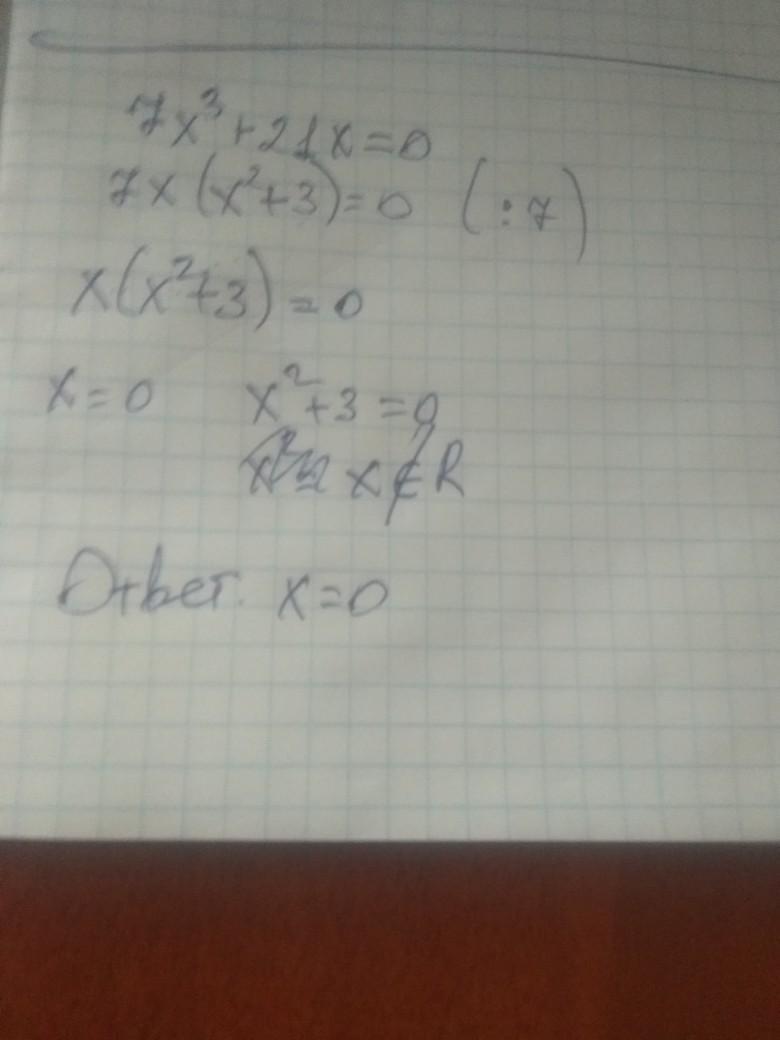 7x³+21x=0
7x(x²+3)=0 (:7)
x(x²+3)=0
x=0 x²+3=0
x∉R
Ответ. x=0